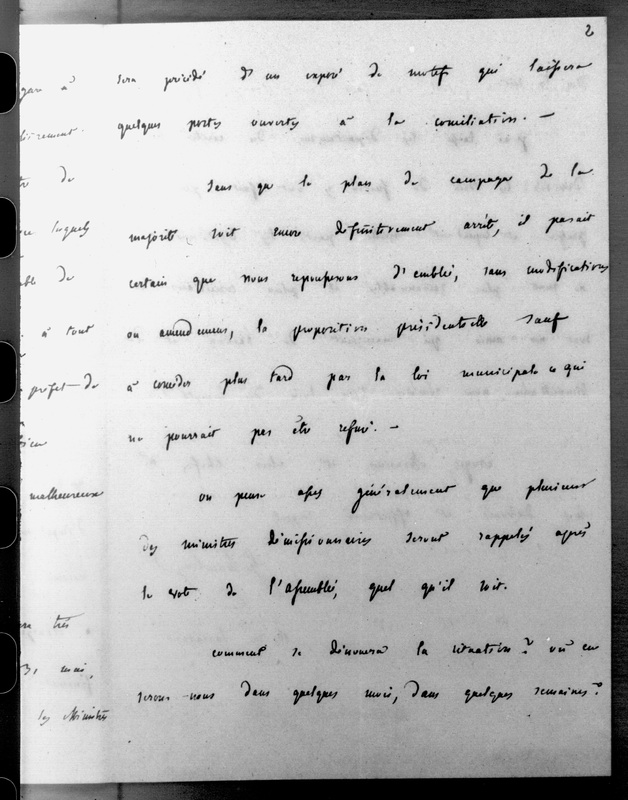 2
sera précédé d'un exposé de motifs qui laissera
quelques portes ouvertes à la conciliation. —
Sans que le plan de campagne de la
majorité soit encore définitivement arrêté, il parait
certain que nous repousserons d'emblée, sans modifications
ou amendemens, la proposition présidentielle sauf
à concéder plus tard par la loi municipale ce qui
ne pourrait pas être refusé. —
on pense assez généralement que plusieurs
des ministres démissionnaires seront rappelés après
le vote de l'assemblée, quel qu'il soit.
comment se dénouera la situation? où en
serons-nous dans quelques mois, dans quelques semaines?
à
de
lesquels
de
à tout
projet de
malheureux
très
31 mai,
les Ministres